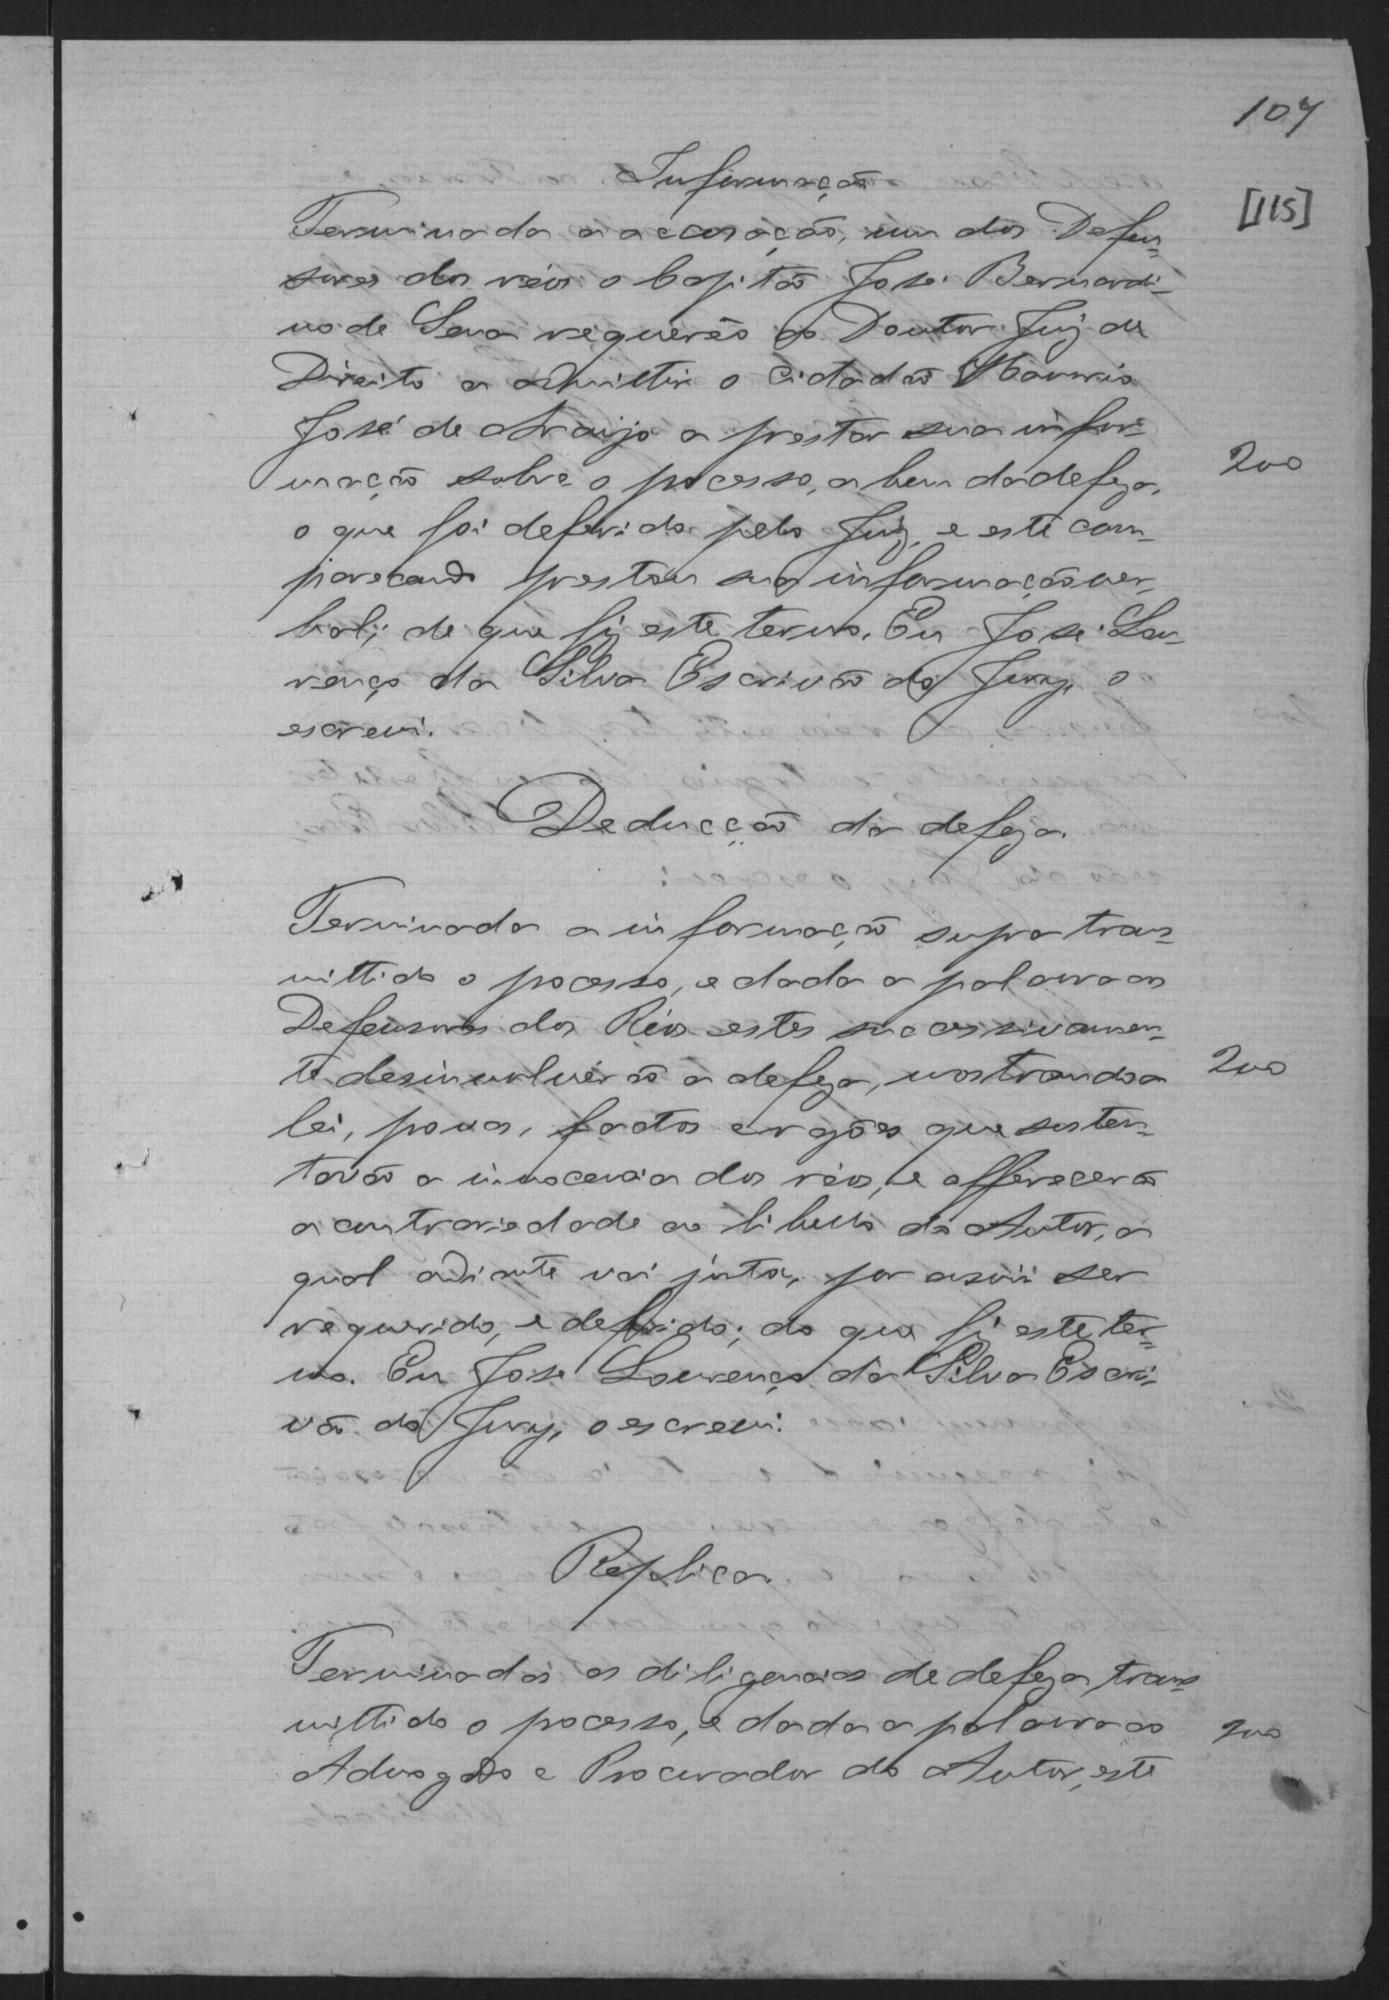 107
[115]
Informação
Terminada a accusação, um dos Defen-
sores dos réos o Capitão José Bernardi-
no de Sena requerêo ao Doutor Juiz de
Direito a admittir o cidadão
José de Araujo a prestar sua infor-
mação sobre o pocesso, a bem da defeza,
200
o que foi deferido pelo Juiz, e este com-
parecendo prestou sua informação ver-
bal; de que fiz este termo. Eu José Lou-
renço da Silva Escrivão do Jury, o
escrevi.
Deducção da defeza.
Terminada a informação supra trans-
mittido o pocesso, e dada a palavra aos
Defensores dos Réos estes successivamen-
te desinvolvêrão a defeza, mostrando a
200
lei, povas, factos e razões que susten-
tavão a innocencia dos réos, e offerecerão
a contrariedade ao libello do Autor, a
qual adiante vai junta, por assim ser
requerido, e deferido; do que fiz este ter-
mo. Eu José Lourenço da Silva Escri-
vão do Jury, o escrevi.
Replica.
Terminadas as diligencias de defeza, trans-
mittido o pocesso, e dada a palavra ao
200
Advogado e Procurador do Autor, este